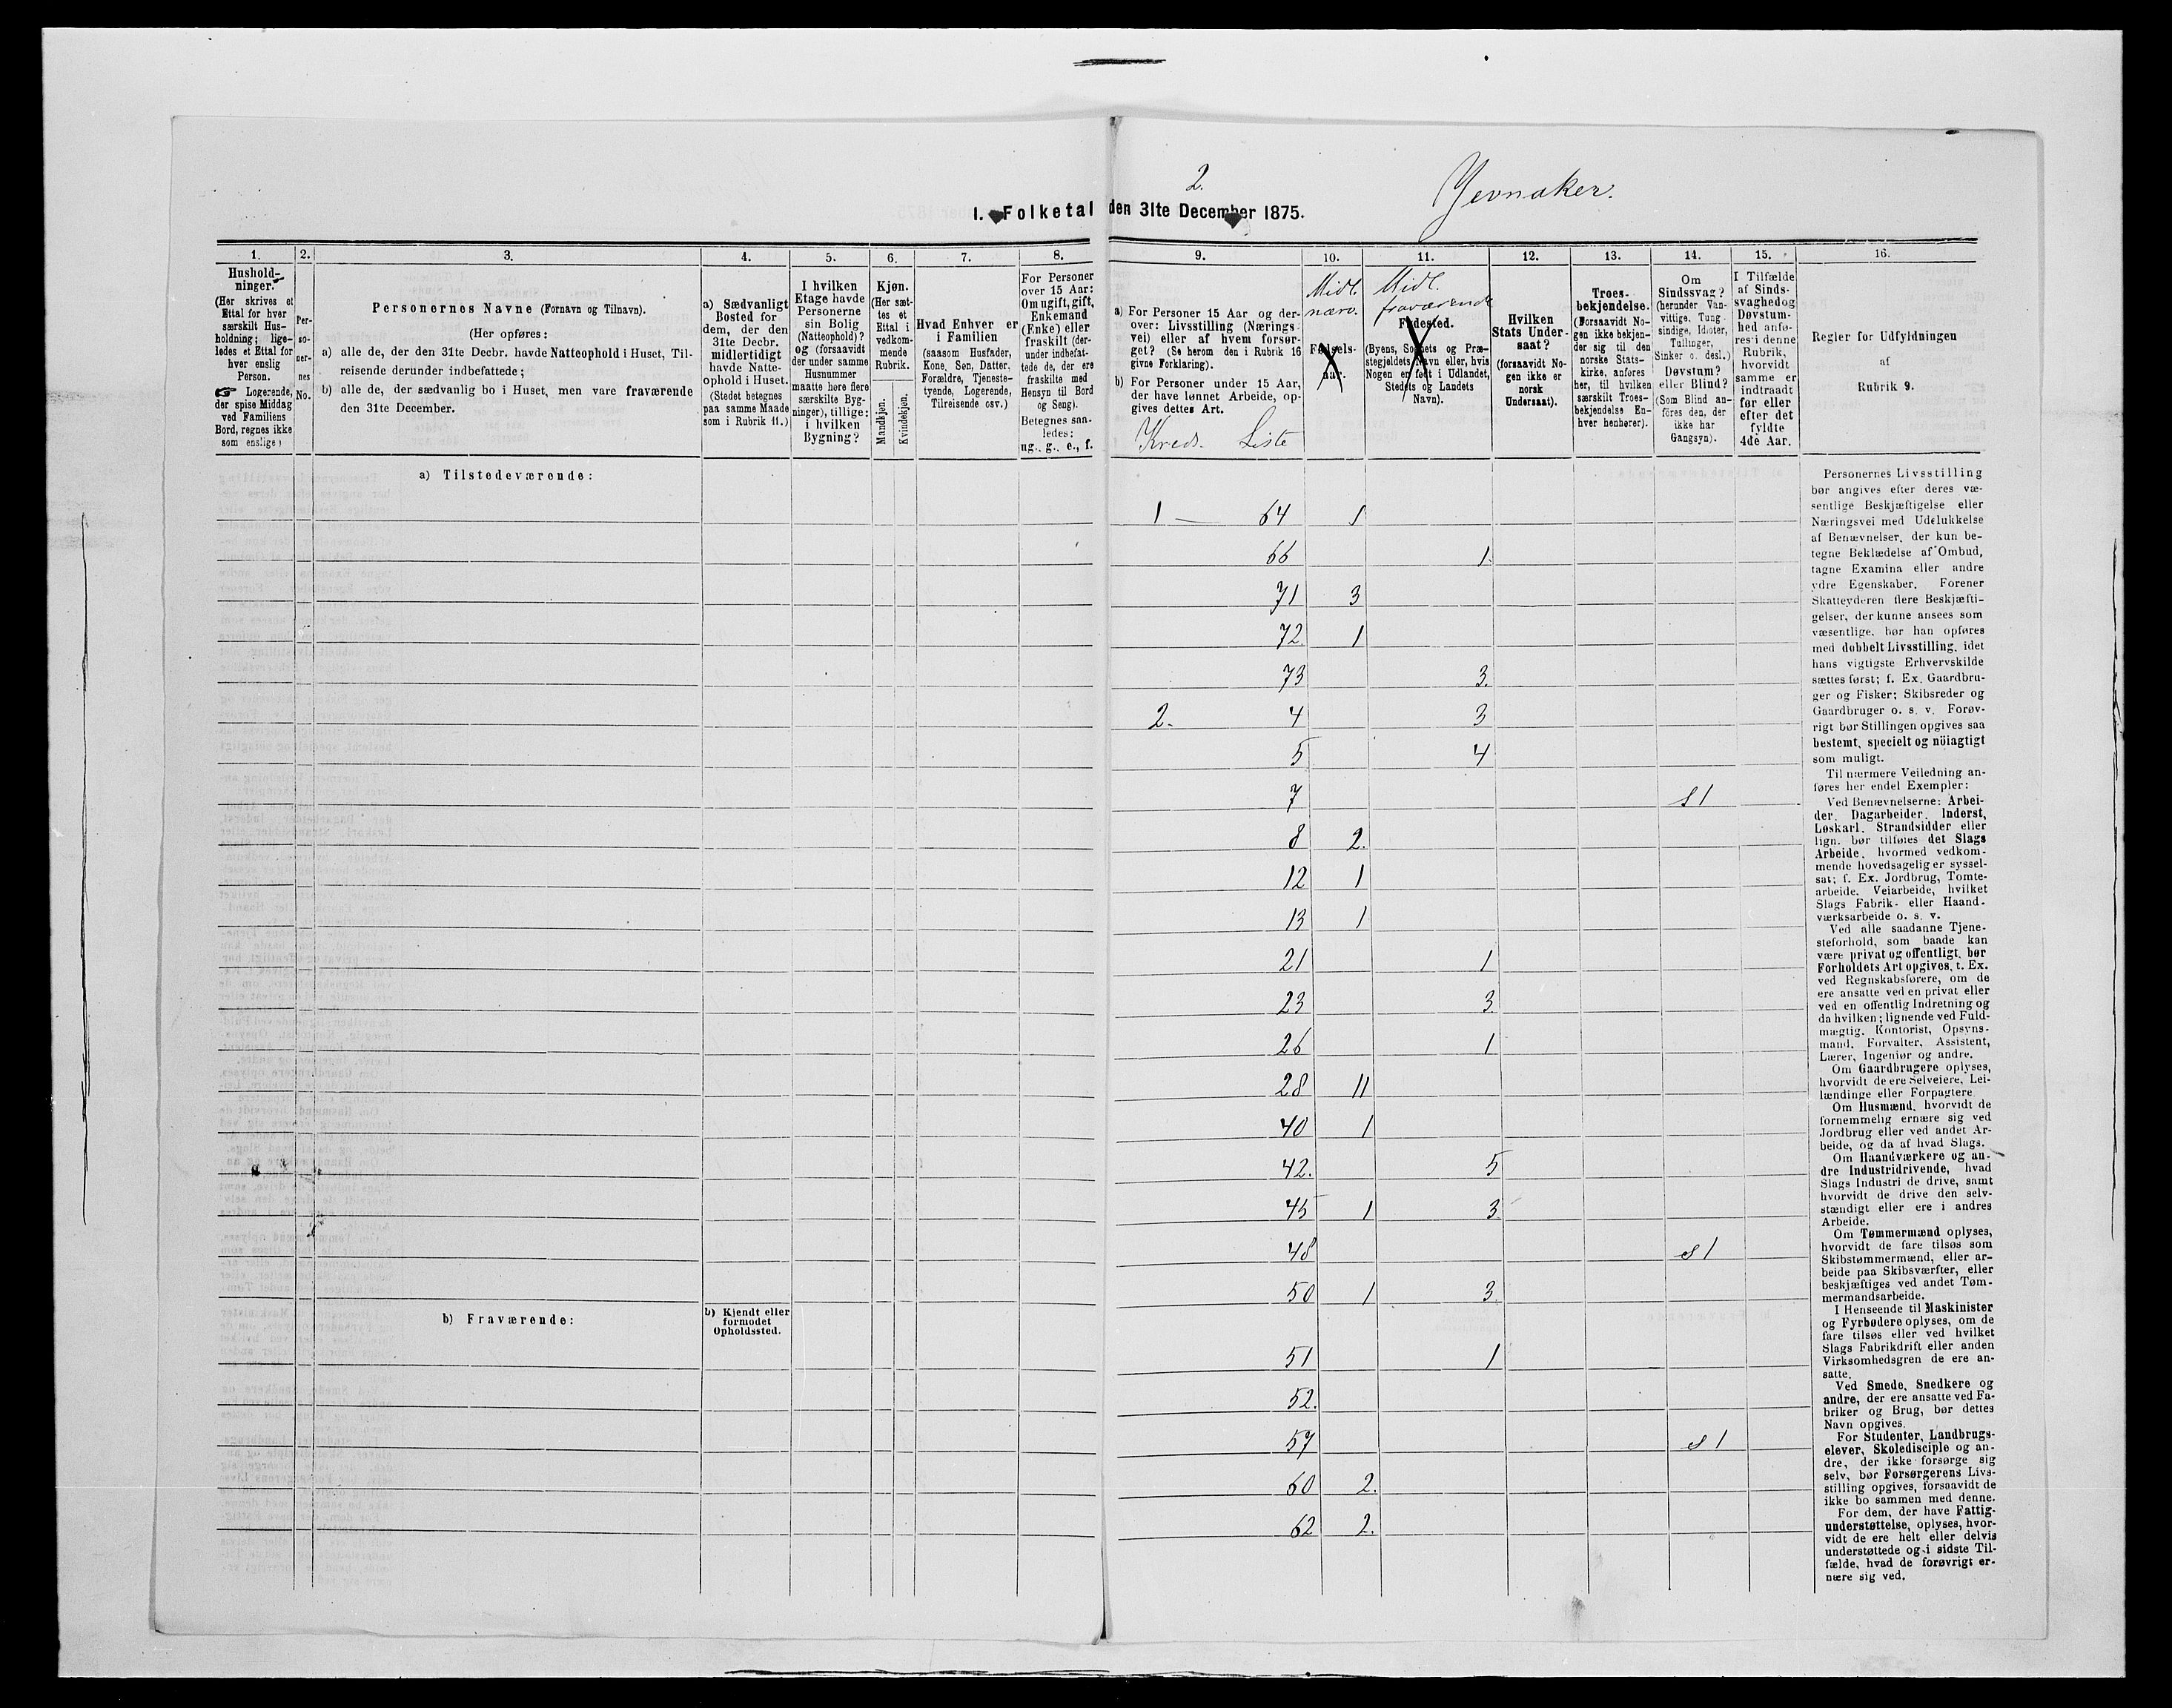 2.
Jevnaker.
1. Folketal den 31te December 1875.
1.
2.
3.
4.
5.
6.
7.
8.
9.
10.
11.
12.
13.
14.
15.
16.
Hushold-
ninger.
(Her skrives et
Ettal for hver
særskilt Hus-
holdning; lige-
ledes et Ettal for
hver enslig
Person.
☞ Logerende,
der spise Middag
ved Familiens
Bord, regnes ikke
som enslige)
Per-
so-
ner-
nes
No.
Personernes Navne (Fornavn og Tilnavn).
(Her opføres:
a) alle de, der den 31te Decbr. havde Natteophold i Huset, Til-
reisende derunder indbefattede;
b) alle de, der sædvanlig bo i Huset, men vare fraværende
den 31te December.
a) Sædvanligt
Bosted for
dem, der den
31te Decbr.
midlertidigt
havde Natte-
ophold i Huset.
(Stedet betegnes
paa samme Maade
som i Rubrik 11.)
I hvilken
Etage havde
Personerne
sin Bolig
(Natteophold)?
og (forsaavidt
der under samme
Husnummer
maatte høre flere
særskilte Byg-
ninger), tillige:
i hvilken
Bygning?
Kjøn.
(Her sæt-
tes et
Ettal i
vedkom-
mende
Rubrik.
Mandkjøn.
Kvindekjøn.
Hvad Enhver er
i Familien
(saasom Husfader,
Kone, Søn, Datter,
Forældre, Tjeneste-
tyende, Logerende,
Tilreisende osv.)
For Personer
over 15 Aar:
Om ugift, gift,
Enkemand
(Enke) eller
fraskilt (der-
under indbefat-
tede de, der ere
fraskilte med
Hensyn til Bord
og Seng).
Betegnes saa-
ledes:
ug., g., e., f.
a) For Personer 15 Aar og der-
over: Livsstilling (Nærings-
vei) eller af hvem forsør-
get? (Se herom den i Rubrik 16
givne Forklaring).
b) For Personer under 15 Aar,
der have lønnet Arbeide, op-
gives dettes Art.
Kreds. Liste
Midl.
nærv.
Fødsels-
aar.
Midl.
fraværende
Fødested.
(Byens, Sognets og Præ-
stegjeldets Navn eller, hvis
Nogen er født i Udlandet,
Stedets og Landets
Navn).
Hvilken
Stats Under-
saat?
(forsaavidt No-
gen ikke er
norsk
Undersaat).
Troes-
bekjendelse.
(Forsaavidt No-
gen ikke bekjen-
der sig til den
norske Stats-
kirke, anføres
her, til hvilken
særskilt Troes-
bekjendelse En-
hver henhører).
Om
Sindssvag?
(herunder Van-
vittige, Tung-
sindige, Idioter,
Tullinger,
Sinker o. desl.)
Døvstum?
eller Blind?
(Som Blind an-
føres den, der
ikke har
Gangsyn).
I Tilfælde
af Sinds-
svaghed og
Døvstum-
hed anfø-
res i denne
Rubrik,
hvorvidt
samme er
indtraadt
før eller
efter det
fyldte
4de Aar.
Regler for Udfyldningen
af
Rubrik 9.
a) Tilstedeværende:
1 — 64 1
66 1.
71 3
72. 1
73 3.
2. 4 3
5 4
7 s 1
8 2.
12 1
13 1
21 1
23 3
26 1
28 11
40 1
42. 5
45 1 3
48 s 1
50 1 3
b) Fraværende:
b) Kjendt eller
formodet
Opholdssted.
51 1
52.
57 s 1
60 2.
62 2.
Personernes Livsstilling
bør angives efter deres væ-
sentlige Beskjæftigelse eller
Næringsvei med Udelukkelse
af Benævnelser, der kun be-
tegne Beklædelse af Ombud,
tagne Examina eller andre
ydre Egenskaber. Forener
Skatteyderen flere Beskjæfti-
gelser, der kunne ansees som
væsentlige, bør han opføres
med dobbelt Livsstilling, idet
hans vigtigste Erhvervskilde
sættes først; f. Ex. Gaardbru-
ger og Fisker; Skibsreder og
Gaardbruger o. s. v. Forøv-
rigt bør Stillingen opgives saa
bestemt, specielt og nöiagtigt
som muligt.
Til nærmere Veiledning an-
føres her endel Exempler:
Ved Benævnelserne: Arbei-
der, Dagarbeider, Inderst,
Løskarl, Strandsidder eller
lign. bør tilføies det Slags
Arbeide, hvormed vedkom-
mende hovedsagelig er syssel-
sat; f. Ex. Jordbrug, Tomte-
arbeide, Veiarbeide, hvilket
Slags Fabrik- eller Haand-
værksarbeide o. s. v.
Ved alle saadanne Tjene-
steforhold, som baade kan
være privat og offentligt, bør
Forholdets Art opgives, t. Ex.
ved Regnskabsførere, om de
ere ansatte ved en privat eller
ved en offentlig Indretning og
da hvilken; lignende ved Fuld-
mægtig, Kontorist, Opsyns-
mand, Forvalter, Assistent,
Lærer, Ingeniør og andre.
Om Gaardbrugere oplyses,
hvorvidt de ere Selveiere, Lei-
lændinge eller Forpagtere.
Om Husmænd, hvorvidt de
fornemmelig ernære sig ved
Jordbrug eller ved andet Ar-
beide, og da af hvad Slags.
Om Haandværkere og an-
dre Industridrivende, hvad
Slags Industri de drive, samt
hvorvidt de drive den selv-
stændigt eller ere i andres
Arbeide.
Om Tømmermænd oplyses,
hvorvidt de fare tilsøs som
Skibstømmermænd, eller ar-
beide paa Skibsværfter, eller
beskjæftiges ved andet Tøm-
mermandsarbeide.
I Henseende til Maskinister
og Fyrbødere oplyses, om de
fare tilsøs eller ved hvilket
Slags Fabrikdrift eller anden
Virksomhedsgren de ere an-
satte.
Ved Smede, Snedkere og
andre, der ere ansatte ved Fa-
briker og Brug, bør dettes
Navn opgives.
For Studenter, Landbrugs-
elever, Skoledisciple og an-
dre, der ikke forsørge sig
selv, bør Forsørgerens Livs-
stilling opgives, forsaavidt de
ikke bo sammen med denne.
For dem, der have Fattig-
understøttelse, oplyses, hvor-
vidt de ere helt eller delvis
understøttede og i sidste Til-
fælde, hvad de forøvrigt er-
nære sig ved.